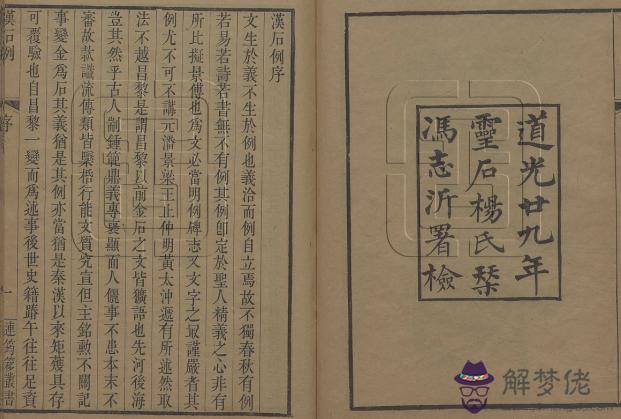 道光廿九年
靈石楊氏栞
馮志沂署檢
漢石例序
文生於義不生於例也義洽而例自立焉故不獨春秋有例
若易若詩若書無不有例其例卽定於聖人精義之心非有
所比擬景傅也爲文必當明例碑志又文字之最謹嚴者其
例尤不可不講元潘景梁王止仲明黃太沖遞有所述然取
法不越昌黎是謂昌黎以前金石之文皆獷語也先河後海
豈其然乎古人制鍾範鼎義專褒顯而人儷事不患本末不
審故款識流傳類皆槩帶行能文質究宣但主銘勲不關記
事變金爲石其義猶是其例亦當猶是秦漢以來矩矱具存
可覆驗也自昌黎一變而爲述事後世史籍踳午往往足資
漢石例
序
一
連筠簃叢書
解梦佬